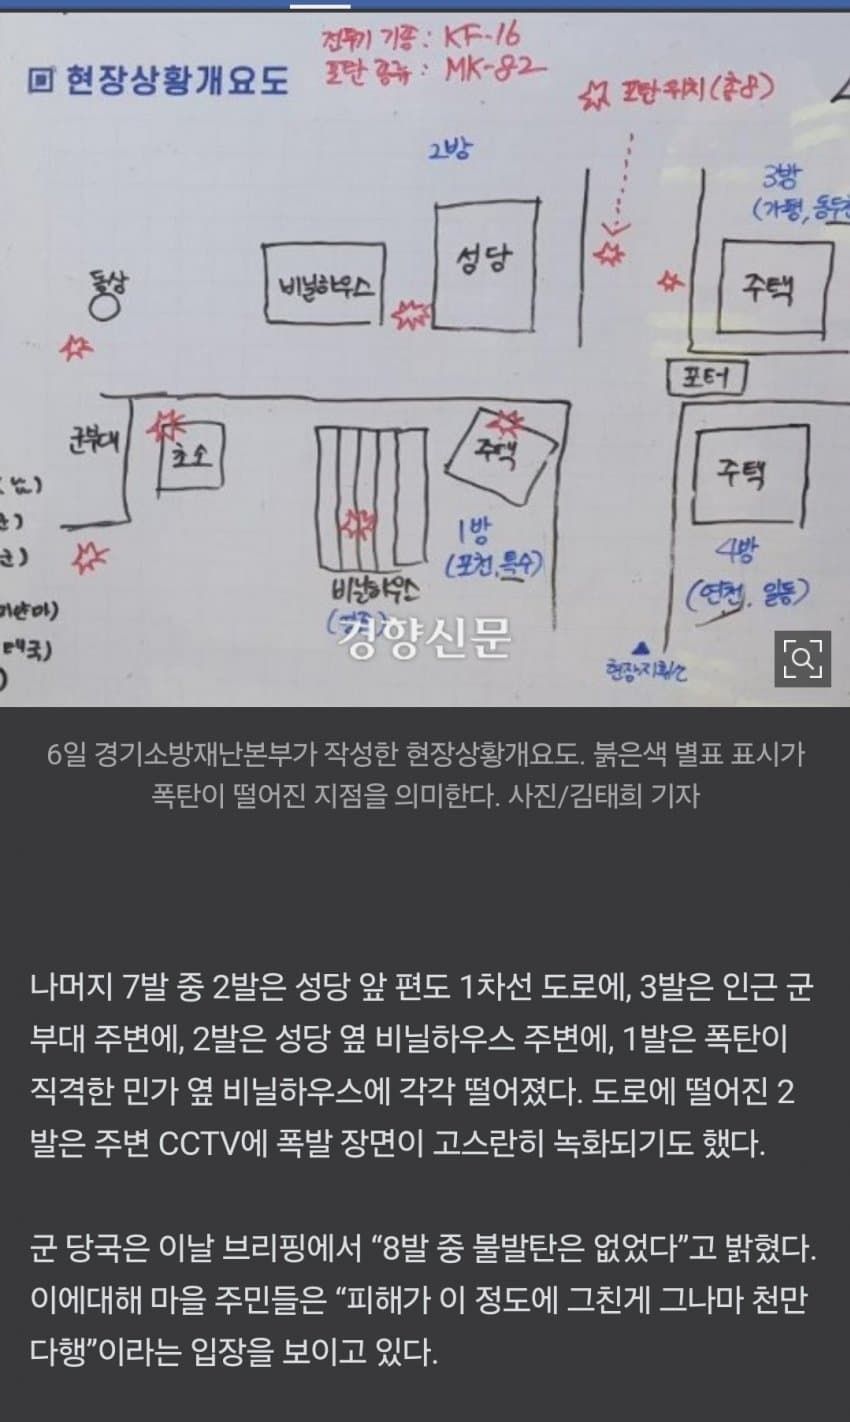 전투기 기종 : KF-16
포탄 종류 : MK-82
현장상황개요도
포탄 위치 (총8)
2방
3방
(가평, 동두천
성당
비닐하우스
주택
돌상
포터
군부대
초소
주택
주택
1방
(포천, 특수)
4방
(연천, 일동)
비닐하우스
경향신문
현장지휘소
태국)
6일 경기소방재난본부가 작성한 현장상황개요도. 붉은색 별표 표시가
폭탄이 떨어진 지점을 의미한다. 사진/김태희 기자
나머지 7발 중 2발은 성당 앞 편도 1차선 도로에, 3발은 인근 군
부대 주변에, 2발은 성당 옆 비닐하우스 주변에, 1발은 폭탄이
직격한 민가 옆 비닐하우스에 각각 떨어졌다. 도로에 떨어진 2
발은 주변 CCTV에 폭발 장면이 고스란히 녹화되기도 했다.
군 당국은 이날 브리핑에서 “8발 중 불발탄은 없었다”고 밝혔다.
이에대해 마을 주민들은 “피해가 이 정도에 그친게 그나마 천만
다행”이라는 입장을 보이고 있다.